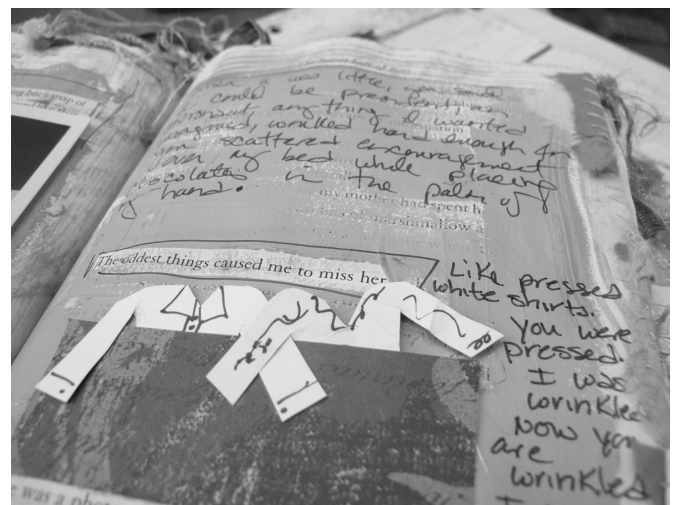 ing but a snap of
When I was little, you said
I could be president, or
anything I wanted
worked hard enough for
scattered encouragement
over my bed while placing
chocolates in the palm of
my hand.
my mother had spent h
of marshmallow a
The oddest things caused me to miss her
Like pressed
white shirts.
You were
pressed.
I was
wrinkled
Now you
are
wrinkled
I
e was a pho